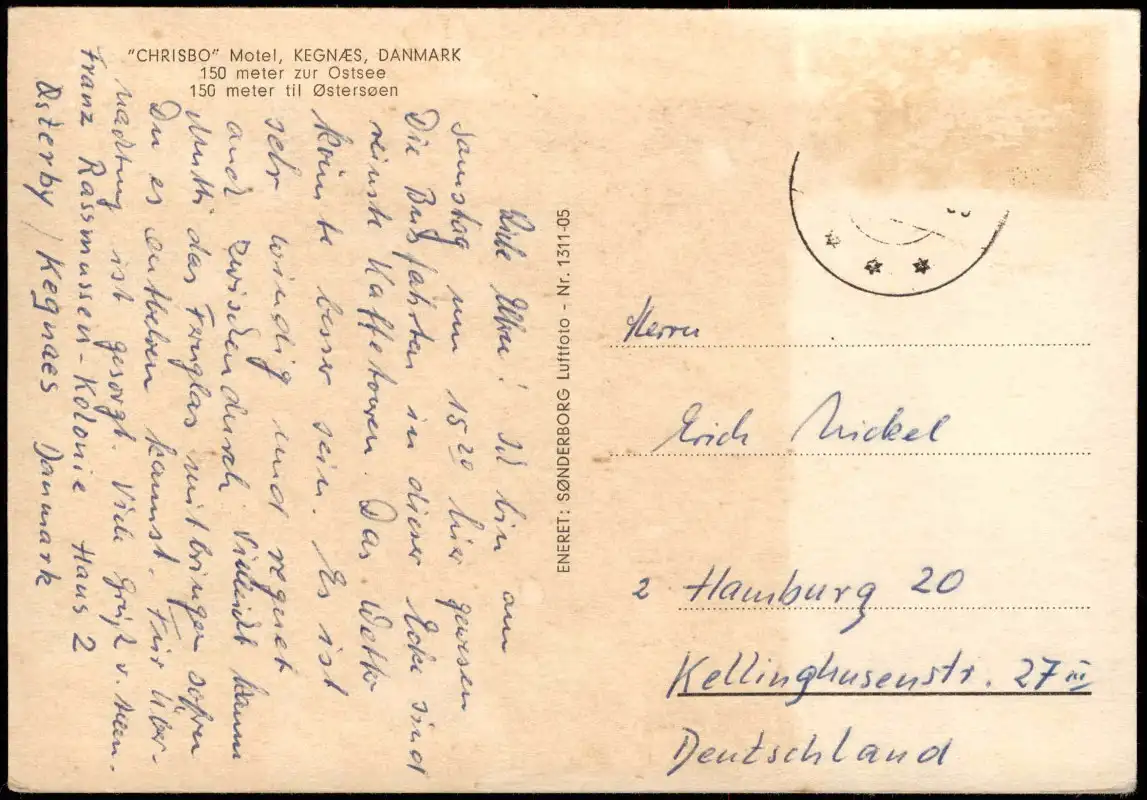 "CHRISBO" Motel, KEGNÆS, DANMARK
150 meter zur Ostsee
150 meter til Østersøen
ENERET: SØNDERBORG Luftfoto - Nr. 1311-05
! ich bin am
Samstag um 15 20 hier gewesen
Die Busfahrten in dieser Ecke sind
reinste Kaffetouren. Das Wetter
könnte besser sein. Es ist
sehr windig und regnet
und zwischendurch. Vielleicht kann
Mutti das Fernglas mitbringen sofern
Du es entbehren kannst. Für Über-
nachtung ist gesorgt. Viele Grüße v.
Franz Rassmussen-Kolonie Haus 2
Østerby / Kegnaes Danmark
Herrn
Erich Nickel
2 Hamburg 20
Kellinghusenstr. 27 III
Deutschland